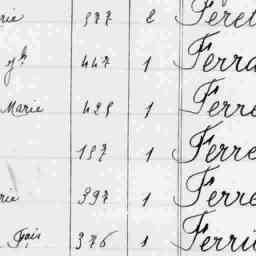 rie 577 2 Feret
jh 447 1 Ferra
Marie 425 1 Ferre
157 1 Ferre
rie 397 1 Ferre
Fçois 376 1 Ferri